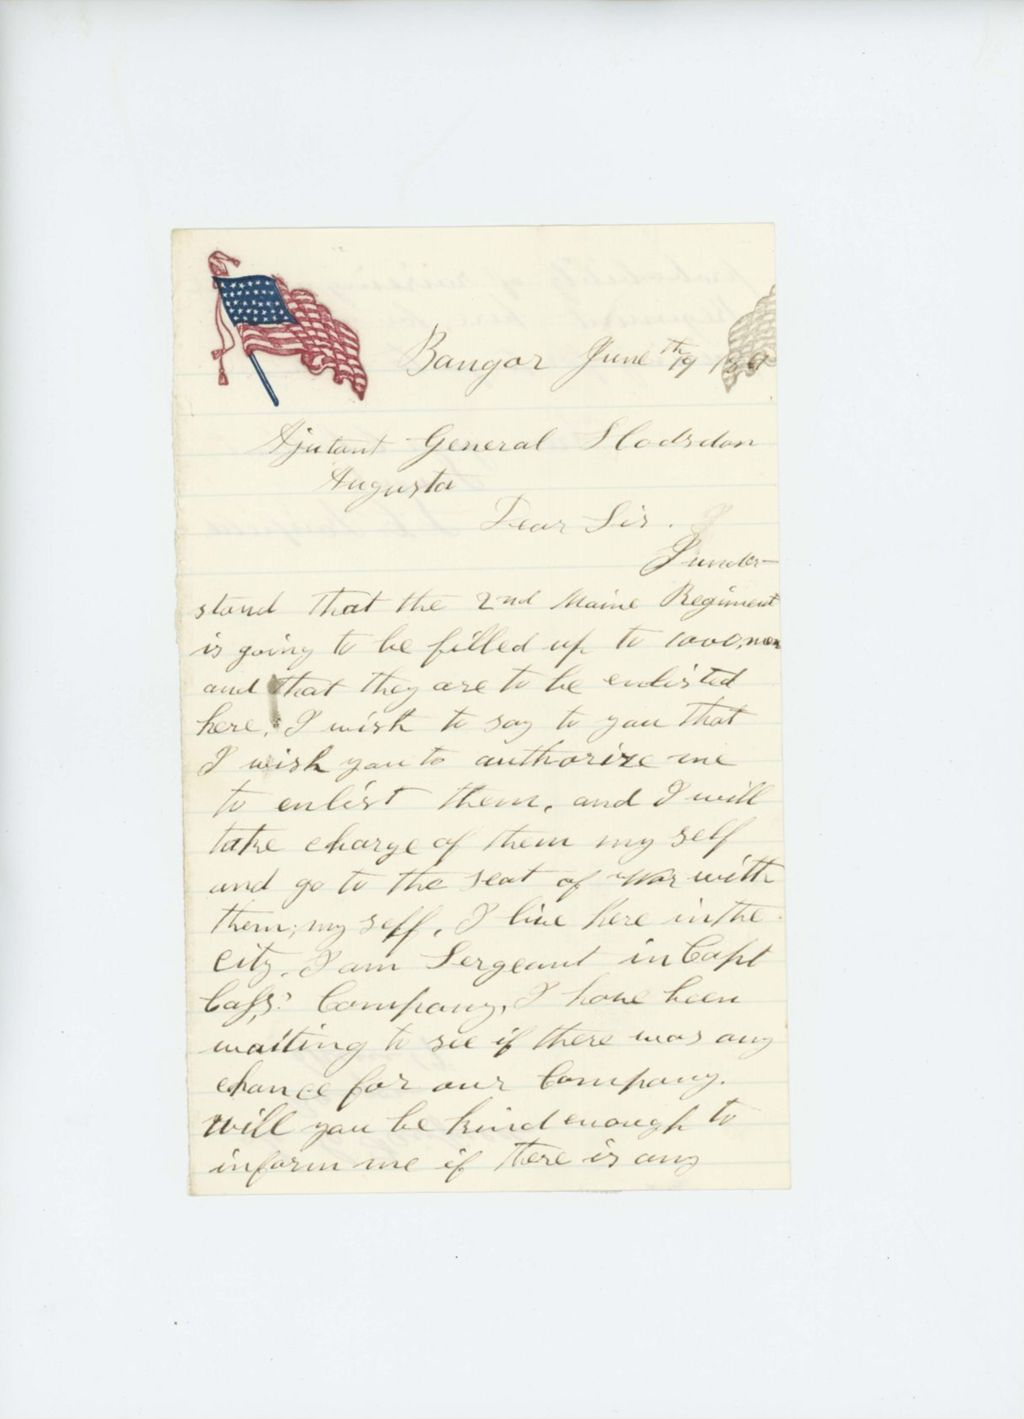 Bangor June 19th
Ajutant General Hodsdon
Augusta
Dear Sir.
I under-
stand that the 2nd Maine Regiment
is going to be filled up to 1000, men
and that they are to be enlisted
here, I wish to say to you that
I wish you to authorize me
to enlist them, and I will
take charge of them my self
and go to the seat of War with
them, my self, I live here in the
city. I am Sergeant in Capt
Cass' Company, I have been
waiting to see if there was any
chance for our Company.
Will you be kind enough to
inform me if there is any